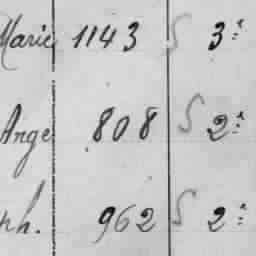 Marie 1143 S 3:
Ange 808 S 2:
ph. 962 S 2: